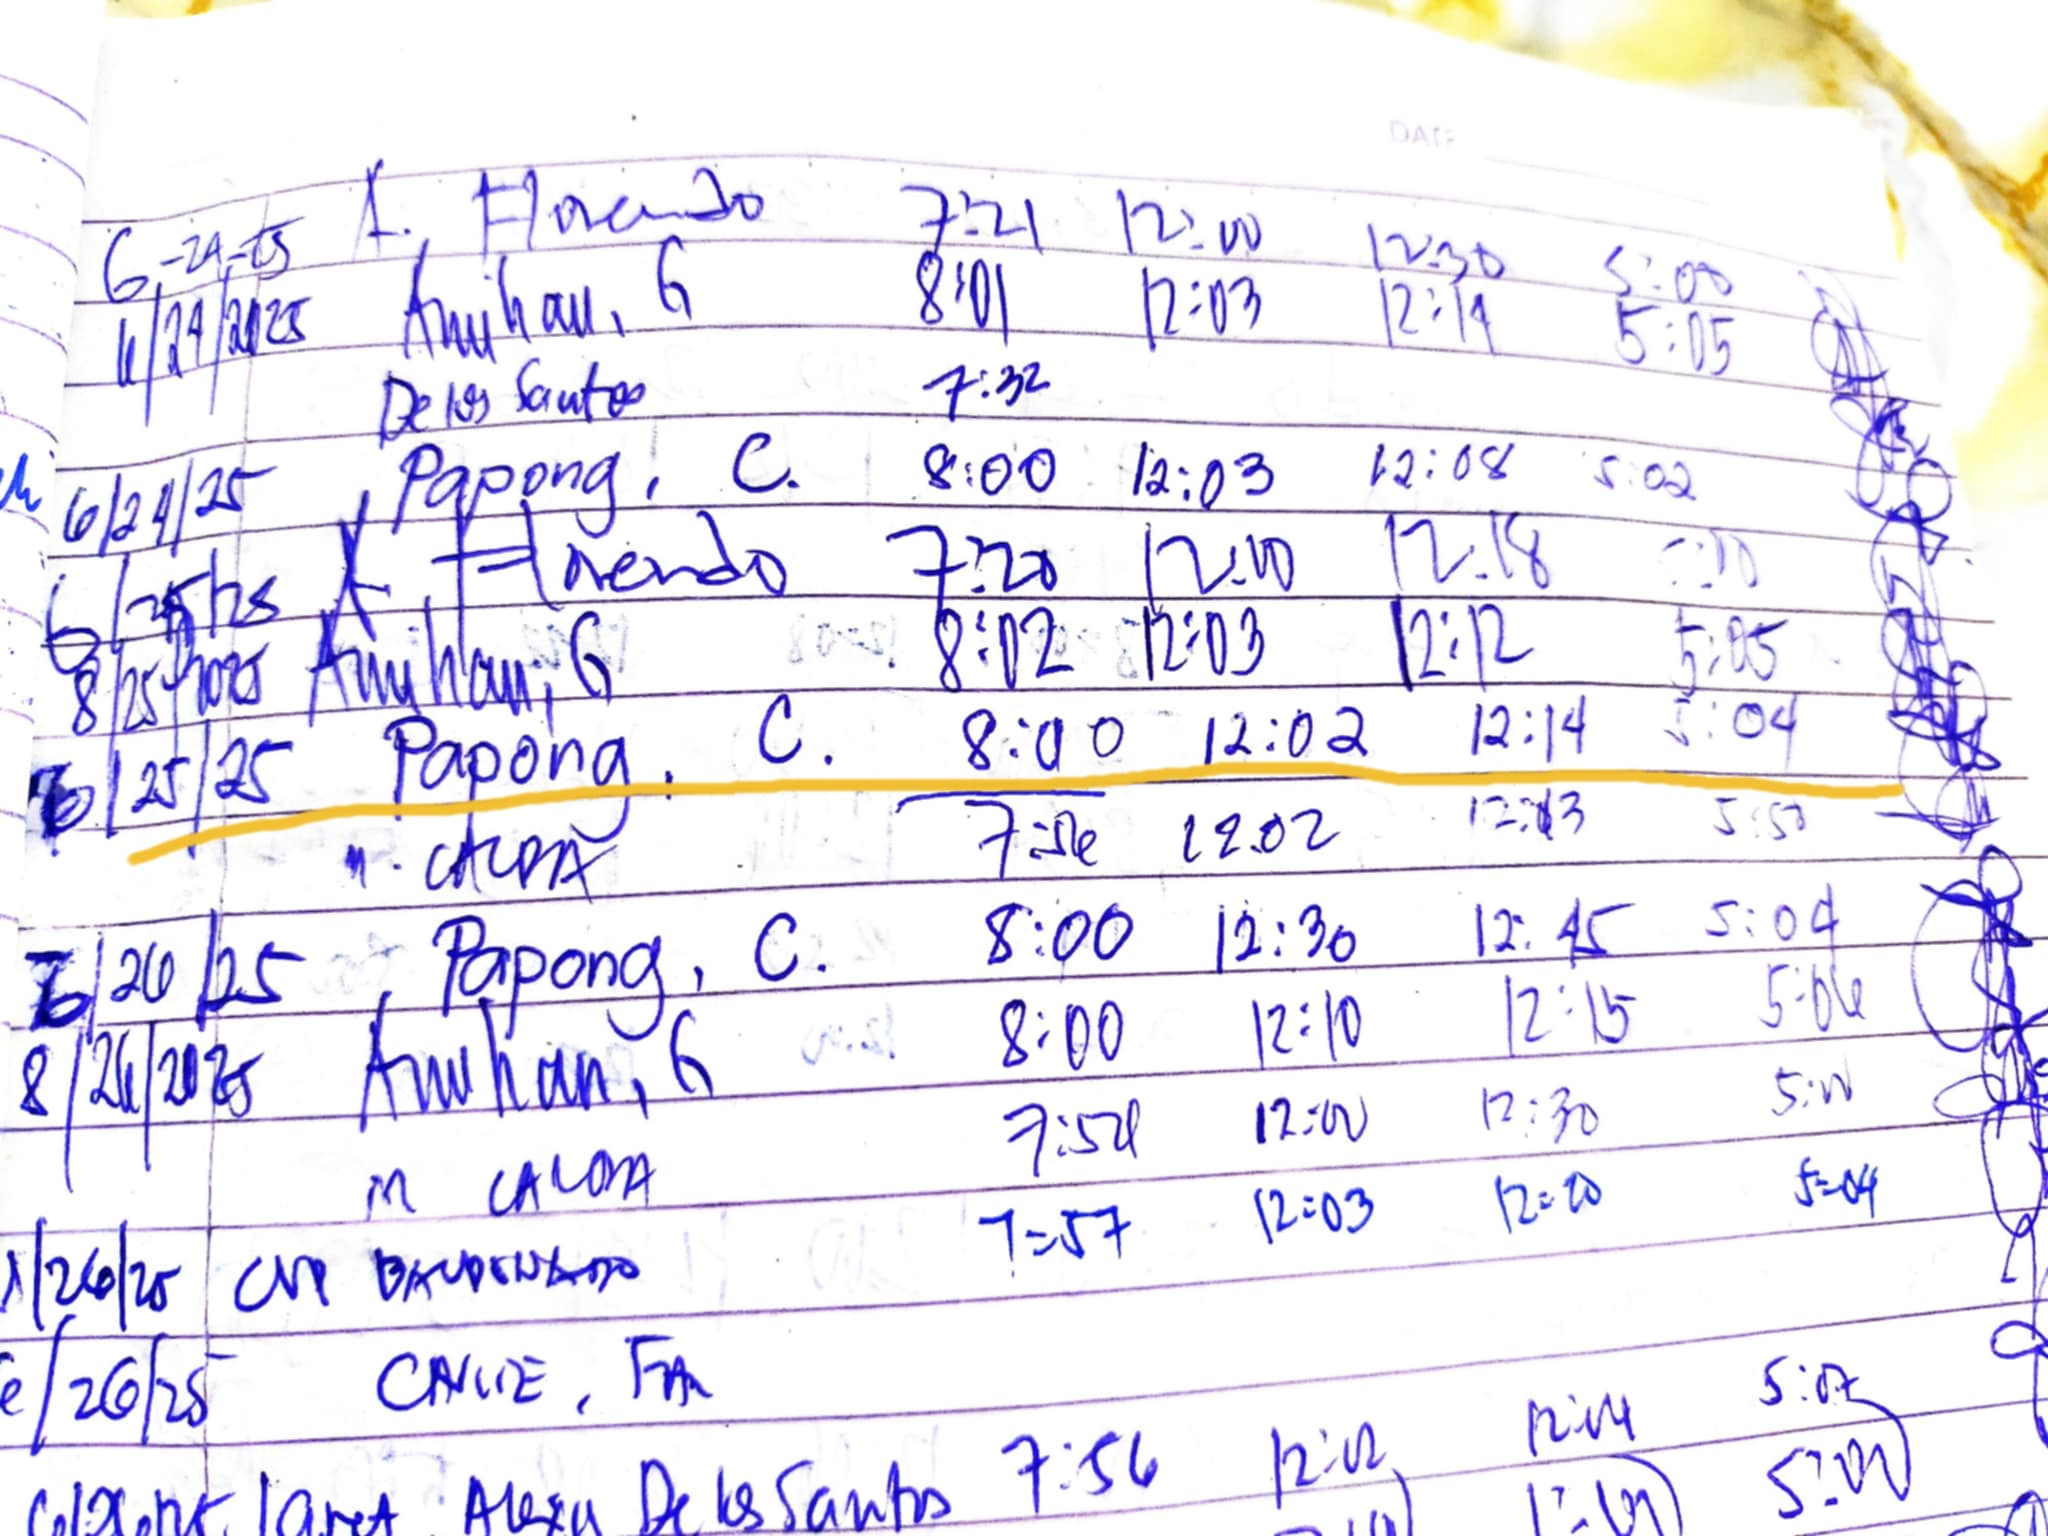 DATE
6-24-25 A. Florendo 7:21 12:00 12:30 5:00
6/24/2025 Amihan, G 8:01 12:03 12:14 5:05
Delos Santos 7:32
6/24/25 Papong, C. 8:00 12:03 12:08 5:02
6/25/25 A. Florendo 7:20 12:00 12:18
8/25/2025 Amihan, G 8:02 12:03 12:12 5:05
6/25/25 Papong, C. 8:00 12:02 12:14 5:04
M. CALDA 7:56 12:02 12:13 5:50
6/26/25 Papong, C. 8:00 12:30 12:45 5:04
8/26/2025 Amihan, G 8:00 12:10 12:15 5:06
M CALDA 7:54 12:00 12:30 5:00
/26/25 7:57 12:03 12:20 5:04
/26/25
Alexa Delos Santos 7:56 12:02 12:04 5:07
5:00